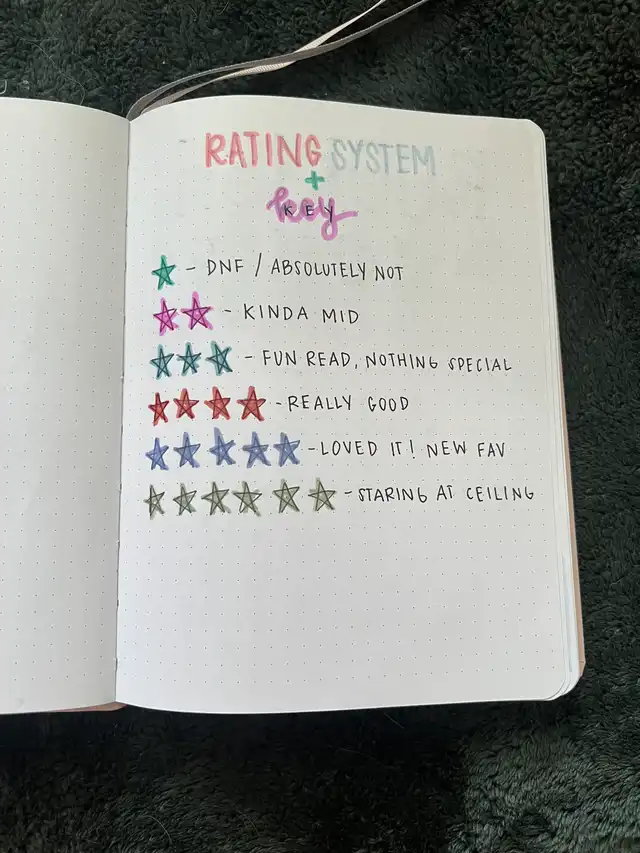 RATING SYSTEM
+
key
KEY
- DNF / ABSOLUTELY NOT
- KINDA MID
- FUN READ, NOTHING SPECIAL
- REALLY GOOD
- LOVED IT! NEW FAV
- STARING AT CEILING